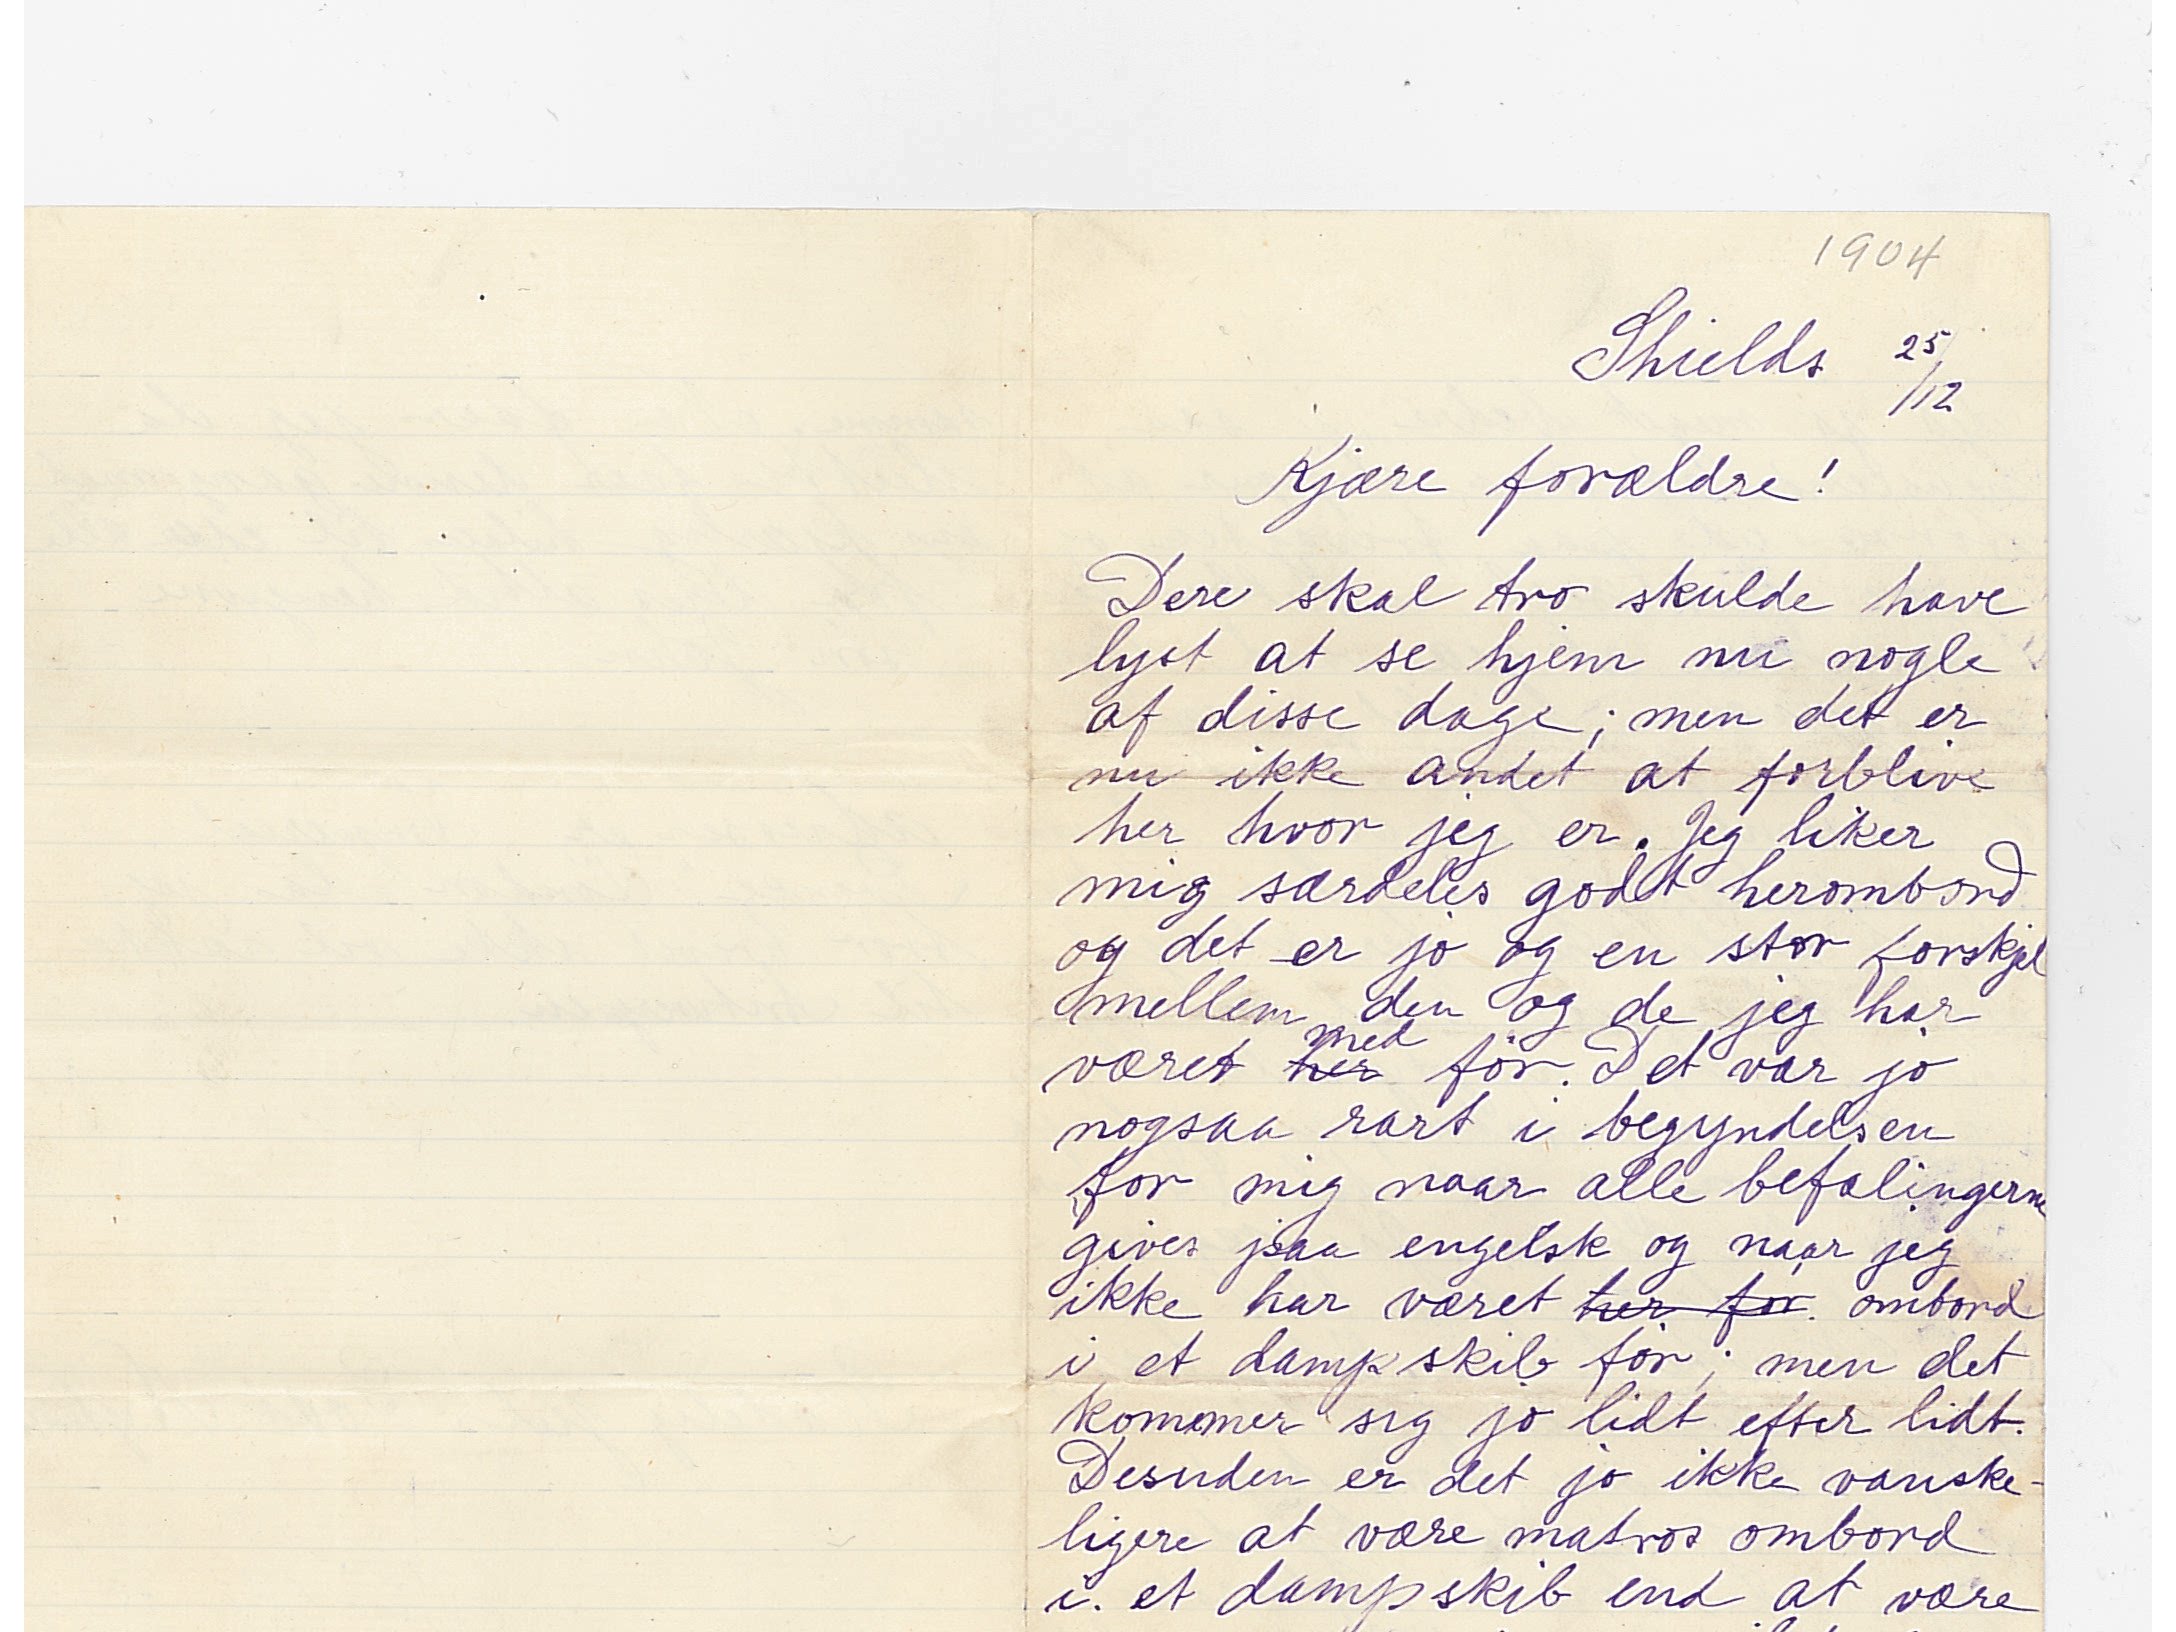 1904
Shields 25/12
Kjære forældre!
Dere skal tro skulde have
lyst at se hjem nu nogle
af disse dage; men det er
nu ikke andet at forblive
her hvor jeg er. Jeg liker
mig særdeles godt herombord
og det er jo og en stor forskjel
mellem den og de jeg har
med
været her för. Det var jo
nogsaa rart i begyndelsen
for mig naar alle befalingerne
gives paa engelsk og naar jeg
ikke har været her för. ombord
i et dampskib för; men det
kommer sig jo lidt efter lidt.
Desuden er det jo ikke vanske-
ligere at være matros ombord
i. et dampskib end at være